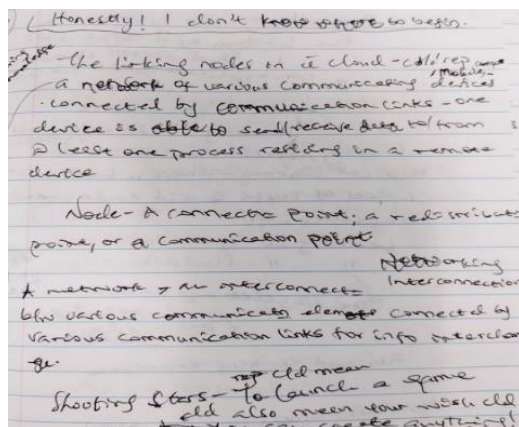 Honestly! I don't know where to begin.
The linking nodes in a cloud - cld rep
a network of various communicating devices
connected by communication links - one
device is able to send/receive data to/from
@ least one process residing in a remote
device
Node - A connectn point, a redistributn
point, or a communication point
Networking
Interconnection
A network → An interconnectn
b/w various communicatn elements connected by
various communication links for info interchan
ge.
rep cld mean
Shooting Stars - To launch a game
cld also mean your wish cld
you can create anything!